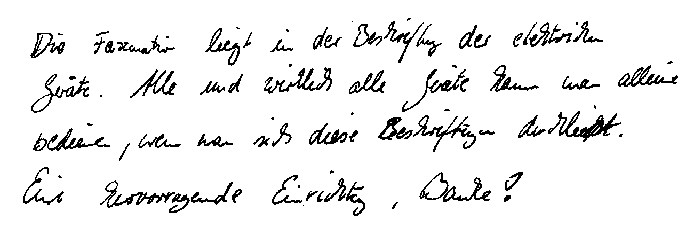 Die Faszination liegt in der Beschriftung der elektrischen
Geräte. Alle und wirklich alle Geräte kann man alleine
bedienen, wenn man sich diese Beschriftungen durchliest.
Eine hervorragende Einrichtung, Danke!